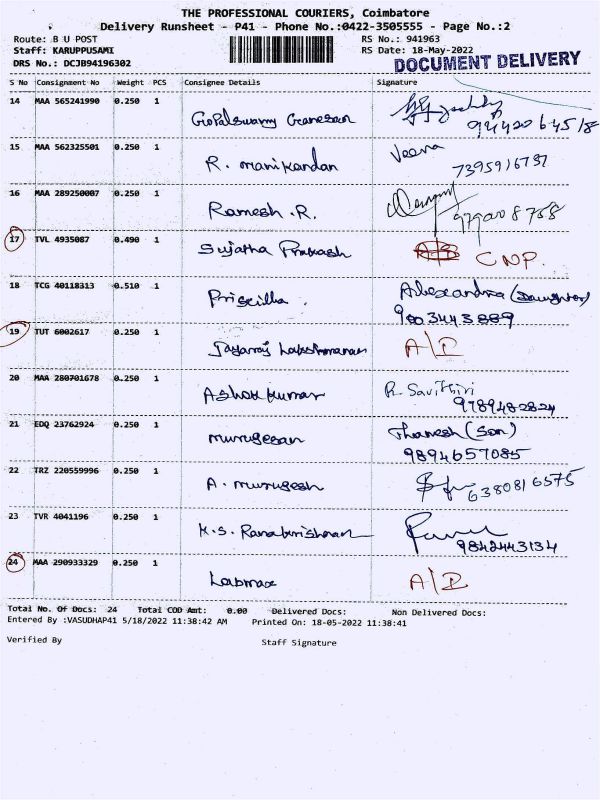 THE PROFESSIONAL COURIERS, Coimbatore
Delivery Runsheet - P41 - Phone No.:0422-3505555 - Page No.:2
Route: B U POST RS No.: 941963
Staff: KARUPPUSAMI RS Date: 18-May-2022
DRS No.: DCJB94196302 DOCUMENT DELIVERY
S No Consignment No Weight PCS Consignee Details Signature
14 MAA 565241990 0.250 1
Gopalswamy Ganesan 9442064518
15 MAA 562325501 0.250 1 Veena
R. manikandan 7395916737
16 MAA 289250007 0.250 1
Ramesh .R. 9792008758
17 TVL 4935087 0.490 1
Sujatha Prakash CNP.
18 TCG 40118313 0.510 1 (Daughter)
Priscilla . 9003443889
19 TUT 6002617 0.250 1 A/D
Jayaraj Lakshmanan
20 MAA 280701678 0.250 1 R. Savithiri
Ashok kumar 9789482824
21 EDQ 23762924 0.250 1 Thanesh (Son)
murugesan 9894657085
22 TRZ 220559996 0.250 1
A. murugesh 6380816575
23 TVR 4041196 0.250 1
K.S. Ramakrishnan 9842443134
24 MAA 290933329 0.250 1
Labmax A/D
Total No. Of Docs: 24 Total COD Amt: 0.00 Delivered Docs: Non Delivered Docs:
Entered By :VASUDHAP41 5/18/2022 11:38:42 AM Printed On: 18-05-2022 11:38:41
Verified By Staff Signature